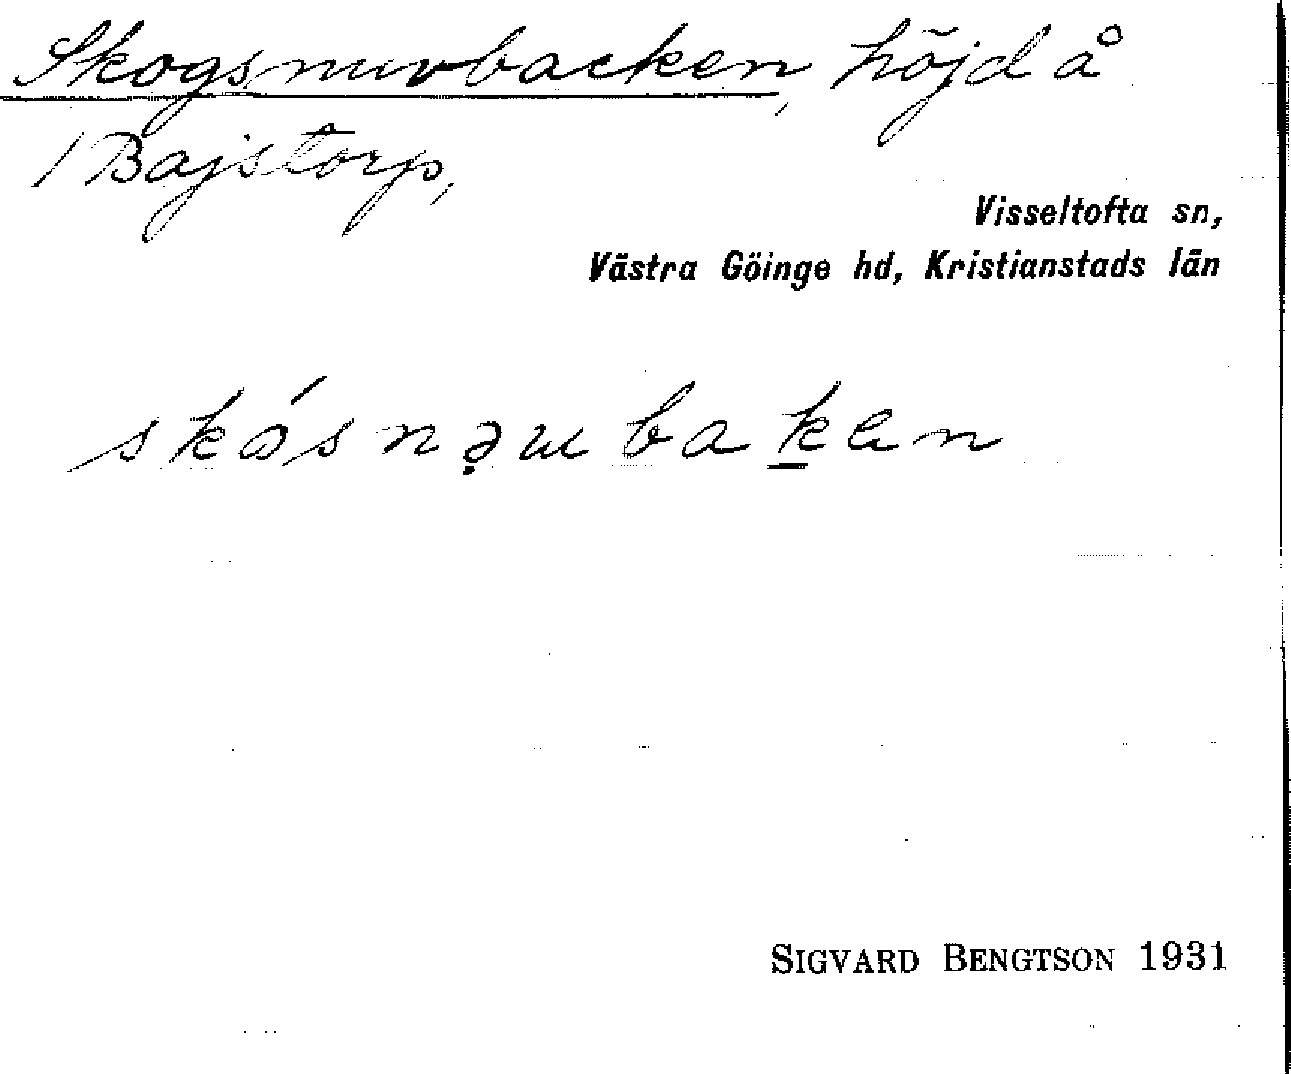 Skogsnuvbacken, höjd å
1 Bajstorp,
Visseltofta sn,
Västra Göinge hd, Kristianstads län
skósnə̣ɯbaḵen
SIGVARD BENGTSON 1931